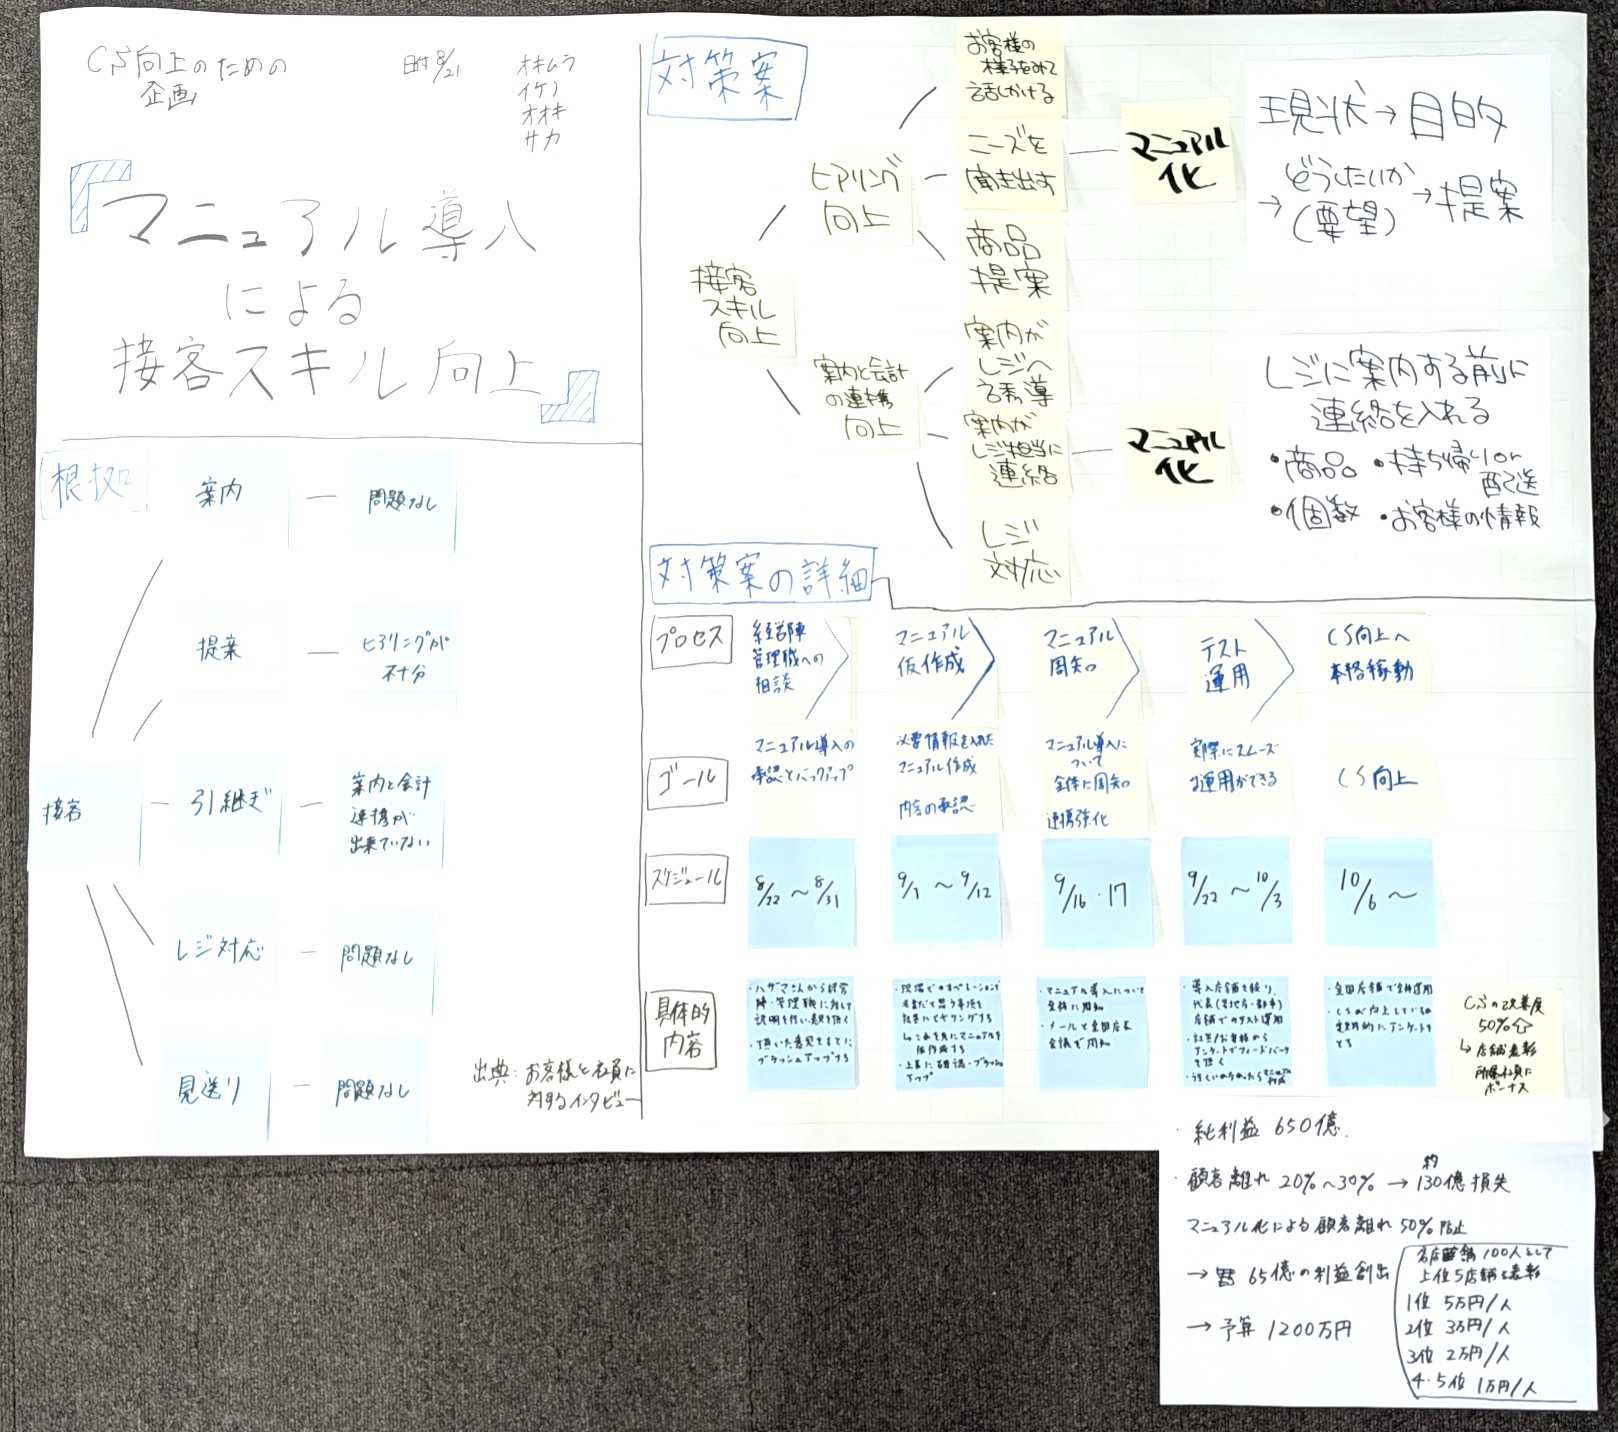 CS向上のための
企画
日付 8/21
オキムラ
イケノ
オオキ
サカ
『マニュアル導入
による
接客スキル向上』
根拠
案内
問題なし
提案
ヒアリングが
不十分
接客
引継ぎ
案内と会計
連携が
出来ていない
レジ対応
問題なし
見送り
問題なし
出典:お客様と社員に
対するインタビュー
対策案
接客
スキル
向上
ヒアリング
向上
お客様の
様子をみて
話しかける
ニーズを
聞き出す
商品
提案
マニュアル
化
現状→目的
→どうしたいか
(要望)
→提案
案内と会計
の連携
向上
案内が
レジへ
誘導
案内が
レジ担当に
連絡
レジ
対応
マニュアル
化
レジに案内する前に
連絡を入れる
・商品 ・持ち帰りor
配送
・個数 ・お客様の情報
対策案の詳細
プロセス
経営陣
管理職への
相談
マニュアル
仮作成
マニュアル
周知
テスト
運用
CS向上へ
本格稼動
ゴール
マニュアル導入の
承認とバックアップ
必要情報を入れた
マニュアル作成
内容の承認
マニュアル導入に
ついて
全体に周知
連携強化
実際にスムーズ
に運用ができる
CS向上
スケジュール
8/22 〜 8/31
9/1 〜 9/12
9/16・17
9/22 〜 10/3
10/6 〜
具体的
内容
・ハザマさんから経営
陣・管理職に対して
説明を行い意見を頂く
・頂いた意見をもとに
ブラッシュアップする
・現場でのオペレーションで
必要だと思う事項を
社員にヒヤリングする
↳これを元にマニュアルを
仮作成する
・上長に確認・ブラッシュ
アップ
・マニュアル導入について
全体に周知
・メールと全国店長
会議で周知
・導入店舗を絞り、
店舗でのテスト運用
・社員/お客様から
アンケートでフィードバック
を頂く
・全国店舗で全体運用
・CSが向上しているか
定期的にアンケートを
とる
CSの改善度
50%↑
↳店舗表彰
所属社員に
ボーナス
・純利益 650億
・顧客離れ 20%〜30% → 約130億損失
マニュアル化による顧客離れ50%防止
→ 65億の利益創出
→ 予算 1200万円
各店舗 100人として
上位5店舗を表彰
1位 5万円/人
2位 3万円/人
3位 2万円/人
4・5位 1万円/人